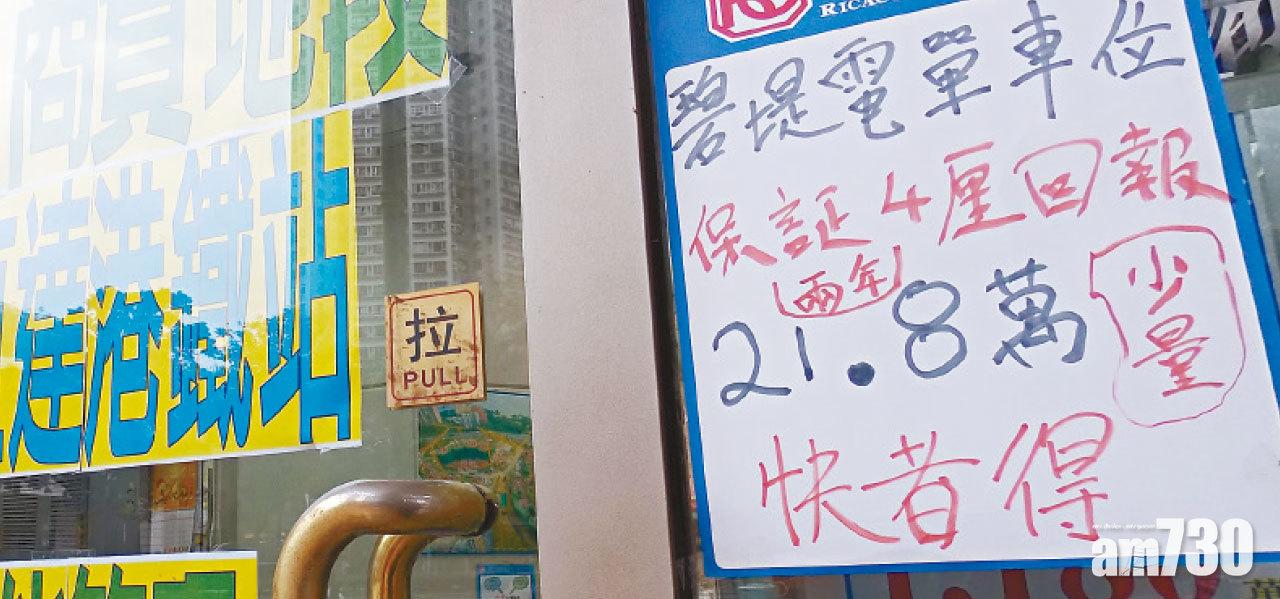 連港鐵站
拉
PULL
RICAC
碧堤電單車位
保証4厘回報
兩年
21.8萬
少量
快者得
am730